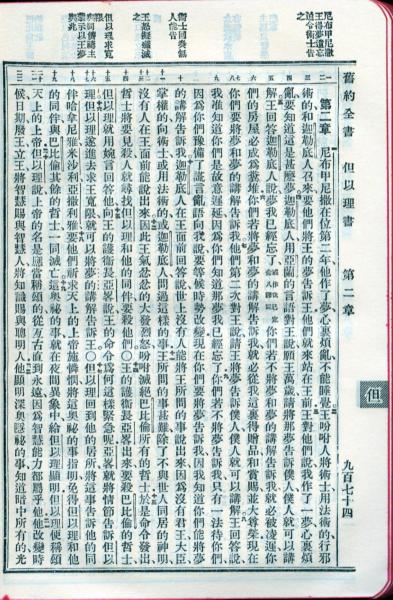 舊約全書 但以理書 第二章 九百七十四
但
尼布甲尼撒
王得夢遺忘
遂令術士告
之
術士同奏無
人能告
王怒擬滅
之
第二章 尼布甲尼撒在位第二年他作了夢心裏煩亂不能睡覺王吩咐人將術士用法術的行邪
術的和迦勒底人召來要他們將王的夢告訴王他們就來站在王前王對他們說我作了一夢心裏煩
亂要知道這是甚麼夢迦勒底人用亞蘭的言語對王說願王萬歲請將那夢告訴僕人僕人就可以講
解王回答迦勒底人說夢我已經忘了你們若不將夢和夢的講解告訴我就必被凌遲你
們的房屋必成為糞堆你們若將夢和夢的講解告訴我就必從我這裏得贈品和賞賜並大尊榮現在
你們要將夢和夢的講解告訴我他們第二次對王說請王將夢告訴僕人僕人就可以講解王回答說
我準知道你們是故意遲延因為你們知道那夢我已經忘了你們若不將夢告訴我只有一法待你們
因為你們豫備了謊言亂語向我說要等候時勢改變現在你們要將夢告訴我因我知道你們能將夢
的講解告訴我迦勒底人在王面前回答說世上沒有人能將王所問的事說出來因為沒有君王大臣
掌權的向術士或用法術的或迦勒底人問過這樣的事王所問的事甚難除了不與世人同居的神明
沒有人在王面前能說出來因此王氣忿忿的大發烈怒吩咐滅絕巴比倫所有的哲士於是命令發出
哲士將要見殺人就尋找但以理和他的同伴要殺他們○王的護衞長亞略出來要殺巴比倫的哲士
但以理就用婉言回答他向王的護衞長亞略說王的命令為何這樣緊急呢亞略就將情節告訴但以
理但以理遂進去求王寬限就可以將夢的講解告訴王○但以理回到他的居所將這事告訴他的同
伴哈拿尼雅米沙利亞撒利雅要他們祈求天上的上帝施憐憫將這奧祕的事指明免得但以理和他
的同伴與巴比倫其餘的哲士一同滅亡這奧祕的事就在夜間異象中給但以理顯明但以理便稱頌
天上的上帝但以理說上帝的名是應當稱頌的從亙古直到永遠因為智慧能力都屬乎他他改變時
候日期廢王立王將智慧賜與智慧人將知識賜與聰明人他顯明深奧隱祕的事知道暗中所有的光